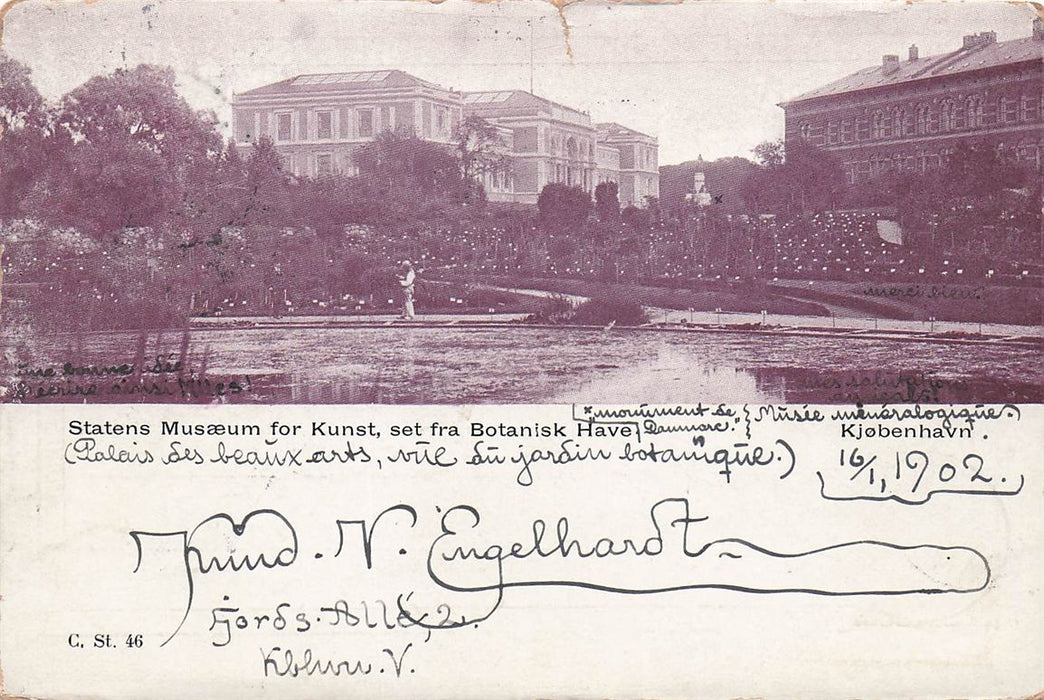 merci bien!
Une bonne idée,
d'écrire ainsi! Mes!
Mes salutations
[*"monument de } Musée minéralogique.)
Statens Musæum for Kunst, set fra Botanisk Have, Danmarc." } Kjøbenhavn.
(Palais des beaux arts, vûe du jardin botanique.)
16/1, 1902.
Knud. N. Engelhardt
Fjords-Allé, 2.
C. St. 46
Kbhvn. V.